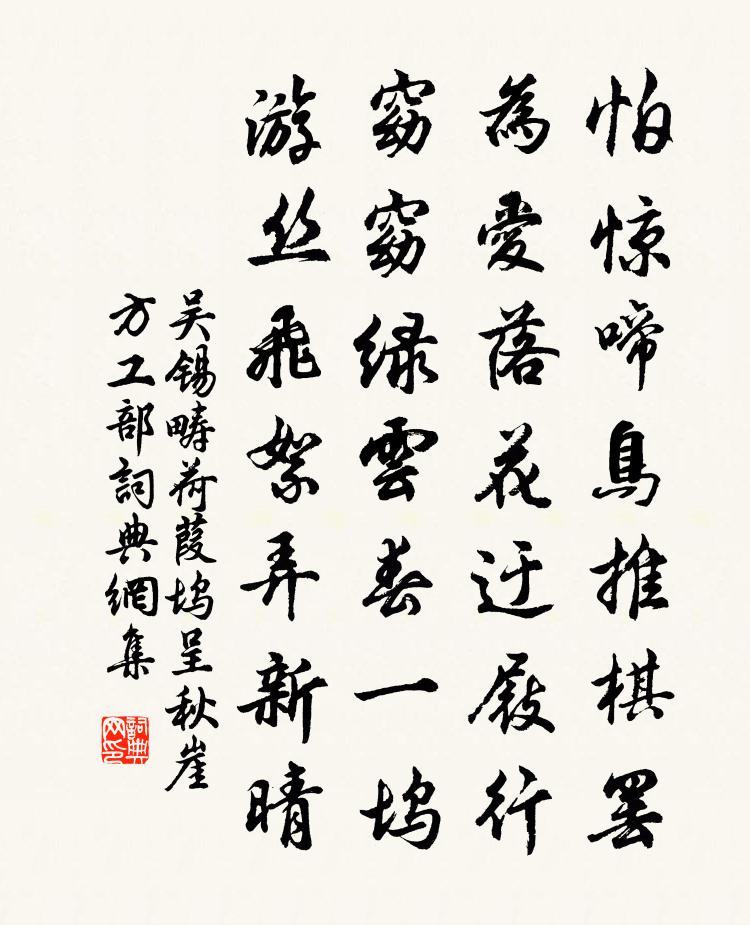 怕惊啼鳥推棋罢
為愛落花迂屐行
窈窈緑雲春一坞
游丝飛絮弄新晴
吴锡畴荷葭坞呈秋崖
方工部詞典網集
詞典
网印